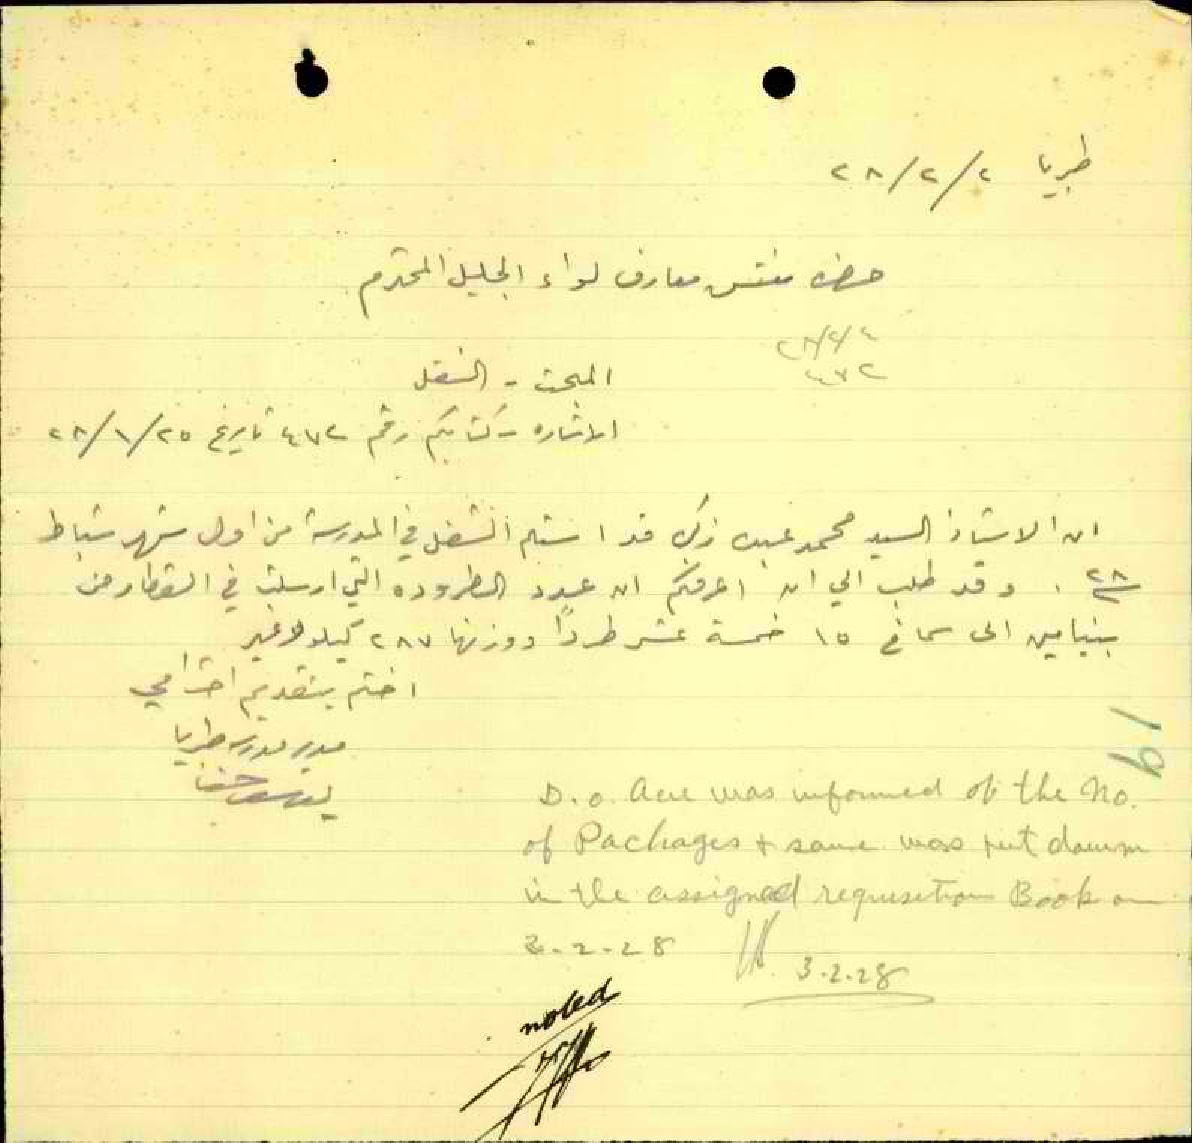 طبريا ٢/٢/٢٨
حضرة مفتش معارف لواء الجليل المحترم
٢٨/٢/٤
٤٧٢
المبحث - النقل
الاشاره - كتابكم رقم ٤٧٢ تاريخ ٢٨/١/٢٥
ان الاستاذ السيد محمد عبده زكي قد استلم الشغل في المدرسة من اول شهر شباط
٢٨ . وقد طلب الي ان اعرفكم ان عدد الطروده التي ارسلت في القطار من
بنيامين الى سماخ ١٥ خمسة عشر طردًا ووزنها ٢٨٧ كيلو لا غير
اختم بتقديم احترامي
مدير مدرسة طبريا
19
D.O. Acre was informed of the No.
of Packages + same was put down
in the assigned requisition Book on
3-2-28
3.2.28
noted